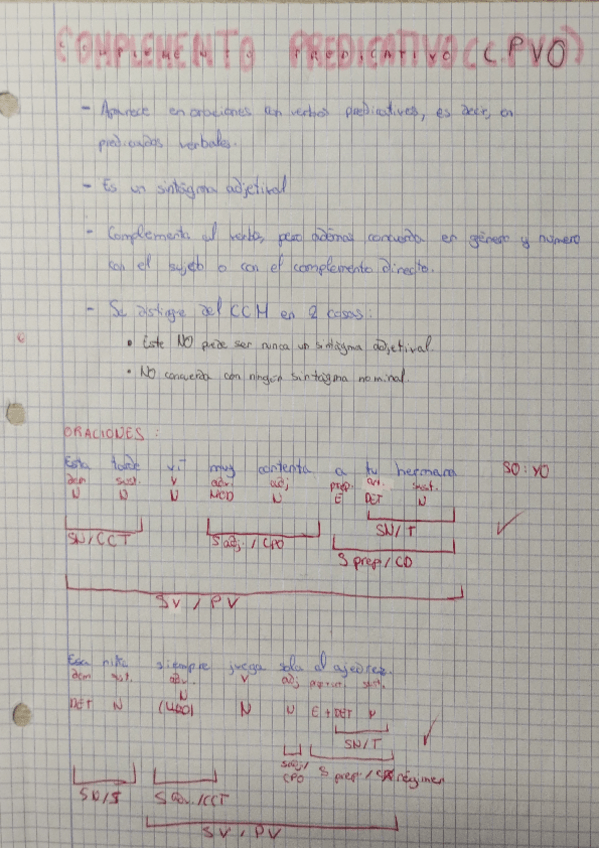 COMPLEMENTO PREDICATIVO (C.PVO)
- Aparece en oraciones con verbos predicativos, es decir, en
predicados verbales.
- Es un sintagma adjetival
- Complementa al verbo, pero además concuerda en género y número
con el sujeto o con el complemento directo.
- Se distingue del CCM en 2 cosas:
• Este NO puede ser nunca un sintagma adjetival.
• NO concuerda con ningún sintagma nominal.
ORACIONES:
Esta tarde vi muy contenta a tu hermana SO: YO
dem sust. v adv. adj prep. sust.
N N N E DET N
SN/T
SN/CCT S adj. / CPO
S prep / CD
SV / PV
Esa niña siempre juega sola al ajedrez.
dem sust. adv. v adj sust.
N
DET N N N E + DET N
SN/T
S adj/
CPO S prep. / régimen
SN/S S adv. /CCT
SV / PV